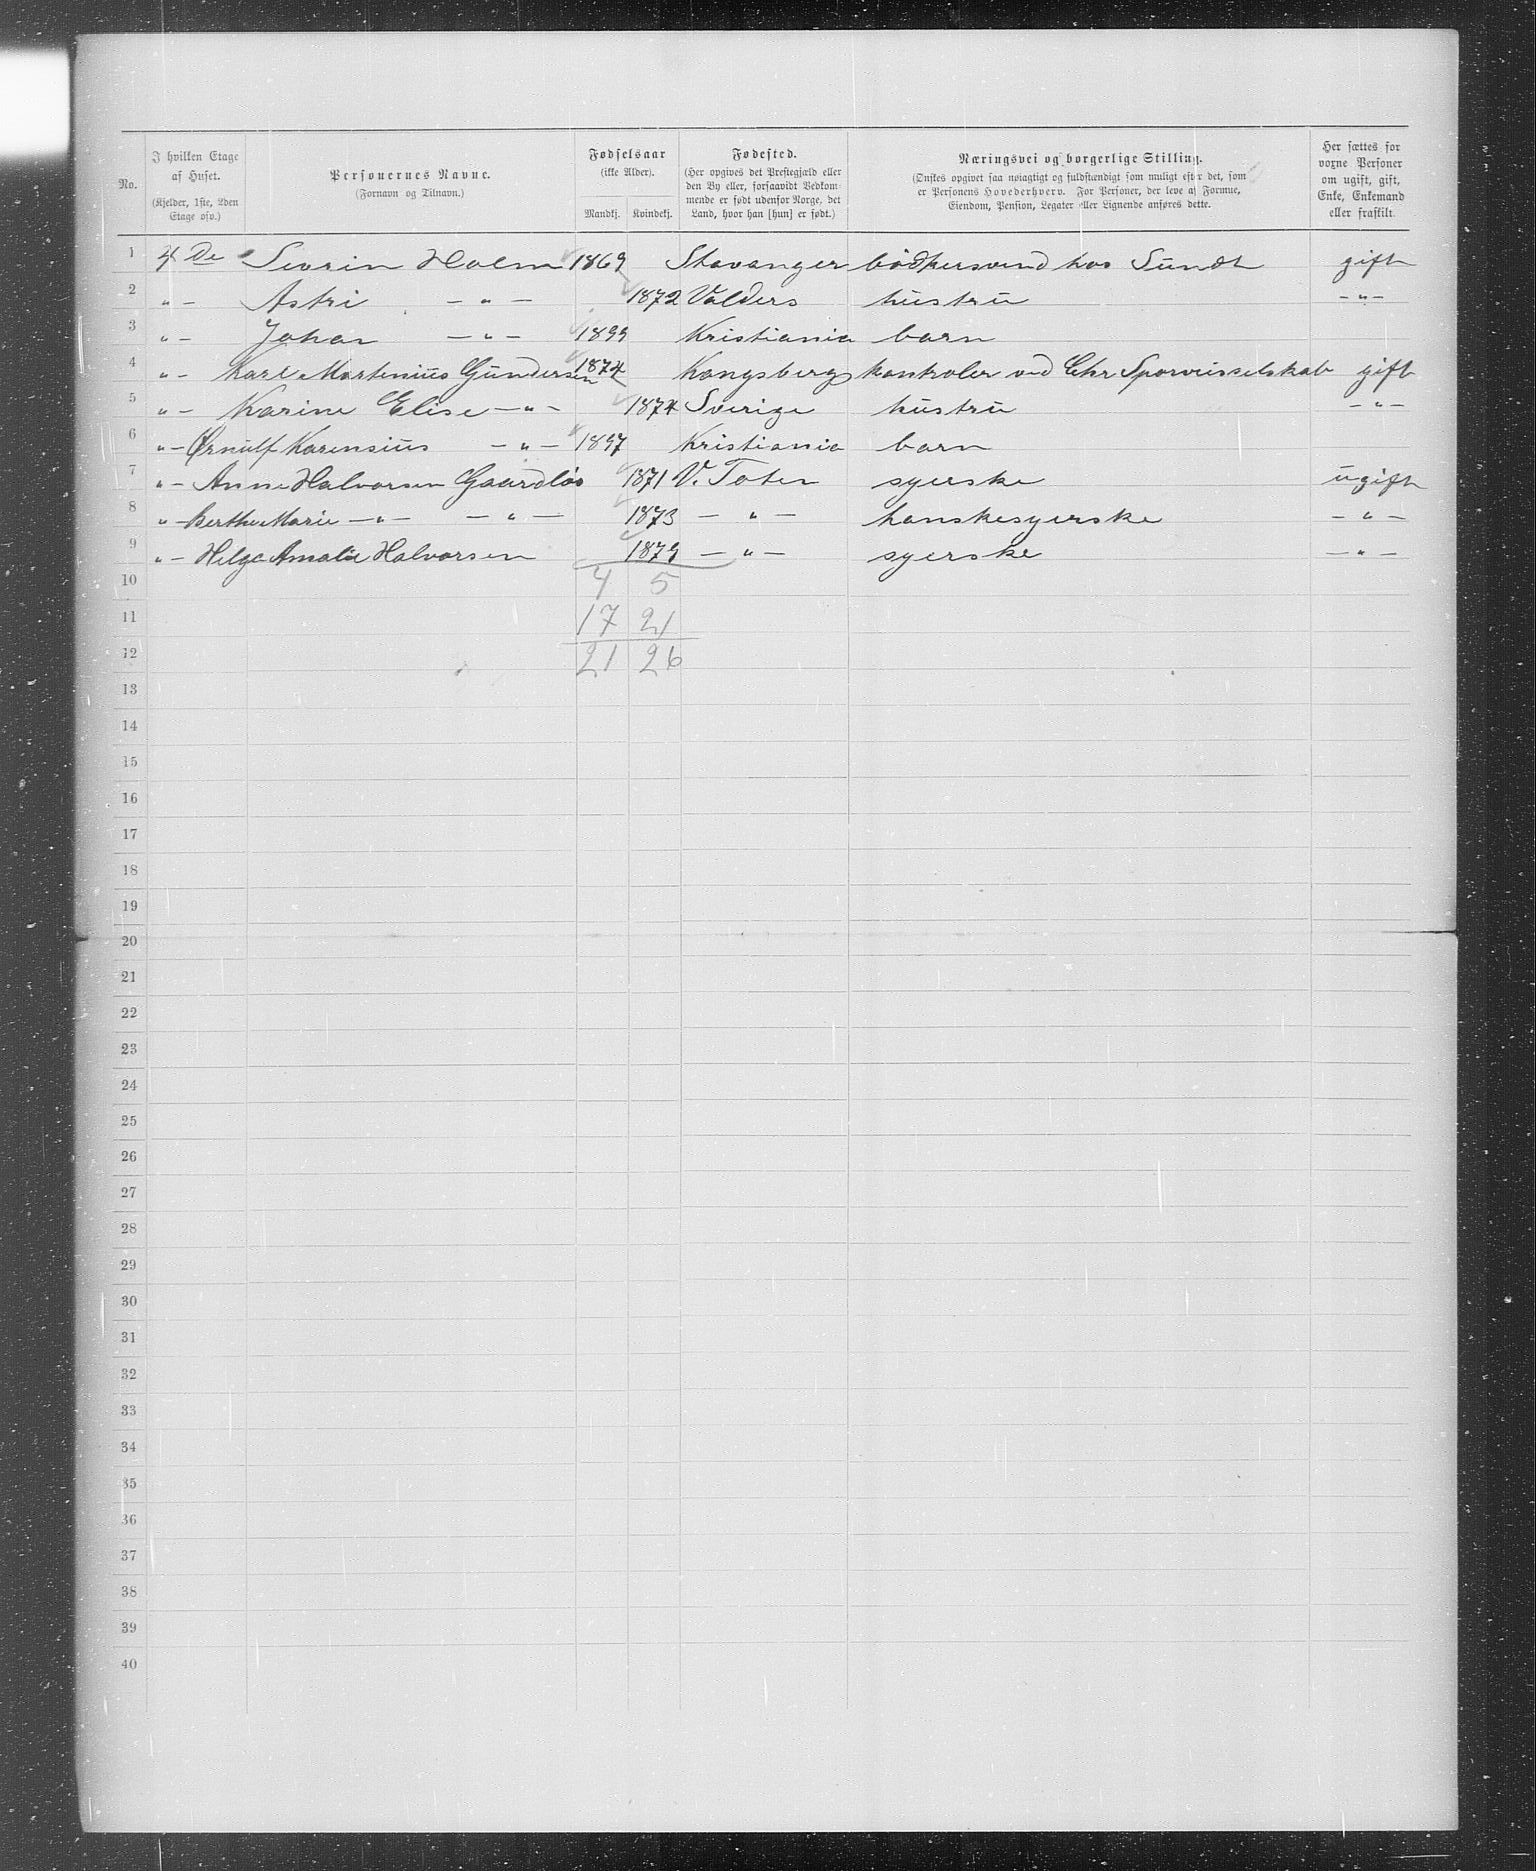 No. | I hvilken Etage af Huset. (Kjelder, 1ste, 2den Etage osv.) | Personernes Navne. (Fornavn og Tilnavn.) | Fødselsaar (ikke Alder). Mandkj. | Kvindekj. | Fødested. (Her opgives det Prestegjæld eller den By eller, forsaavidt Vedkommende er født udenfor Norge, det Land, hvor han [hun] er født.) | Næringsvei og borgerlige Stilling. (Ønskes opgivet saa nøiagtigt og fuldstændigt som muligt efter det, som er Personens Hovederhverv. For Personer, der leve af Formue, Eiendom, Pension, Legater eller Lignende anføres dette. | Her sættes for voxne Personer om ugift, gift, Enke, Enkemand eller fraskilt.
1 4de Sevrin Holm 1869 Stavanger bødkersvend hos Sundt gift
2 " – Astri – " – 1872 Valders hustru – " –
3 " – Johan – " – 1899 Kristiania barn
4 " – Karl Martenius Gundersen 1874 Kongsberg kontrolør ved Chr Sporveisselskab gift
5 " – Karine Elise – " – 1874 Sverige hustru – " –
6 " – Ørnulf Karensius – " – 1897 Kristiania barn
7 " – Anne Halvorsen Gaardløs 1871 V. Toten syerske ugift
8 " – Berthe Marie – " – – " – 1873 – " – hanskesyerske – " –
9 " – Helga Amalie Halvorsen 1879 – " – syerske – " –
10 4 5
11 17 21
12 21 26
13
14
15
16
17
18
19
20
21
22
23
24
25
26
27
28
29
30
31
32
33
34
35
36
37
38
39
40